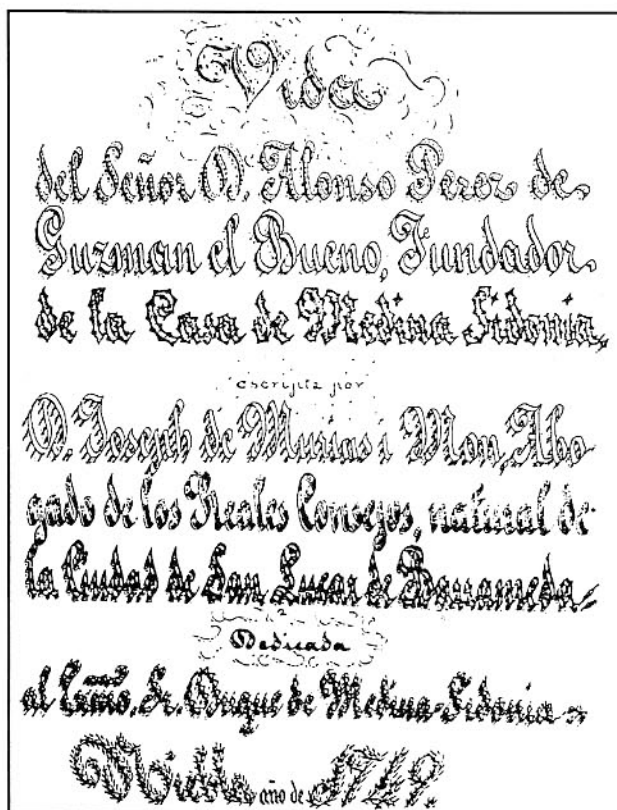 Vida
del Señor D. Alonso Perez de
Guzman el Bueno, Fundador
de la Casa de Medina Sidonia,
escripta por
D. Joseph de Murias i Mon, Abo
gado de los Reales Consejos, natural de
la Ciudad de San Lucar de Barrameda,
Dedicada
al Exmo. Sr. Duque de Medina-Sidonia =
año de 17